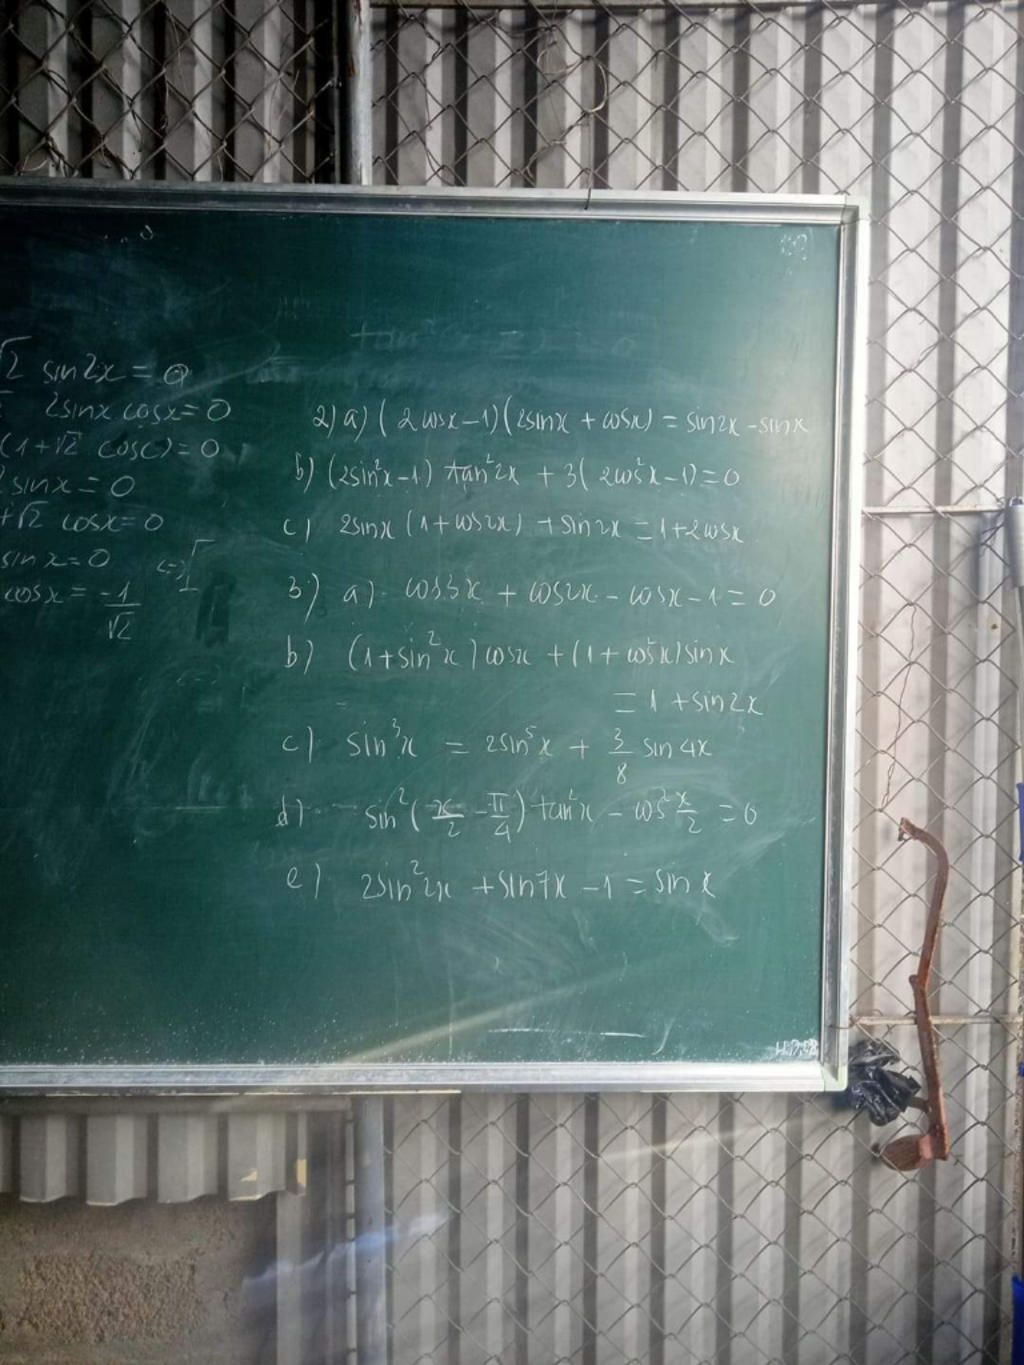 √2 sin2x = 0
2sinx cosx = 0
(1+√2 cosx) = 0
sinx = 0
+√2 cosx = 0
sinx = 0 <=>
cosx = -1/√2
2) a) (2cosx-1)(2sinx + cosx) = sin2x - sinx
b) (2sin²x-1) tan²2x + 3(2cos²x-1) = 0
c) 2sinx (1+cos2x) + sin2x = 1+2cosx
3) a) cos3x + cos2x - cosx - 1 = 0
b) (1+sin²x) cosx + (1+cos²x) sinx
= 1 + sin2x
c) sin³x = 2sin⁵x + 3/8 sin4x
d) sin²(x/2 - π/4) tan²x - cos² x/2 = 0
e) 2sin²2x + sin7x - 1 = sinx